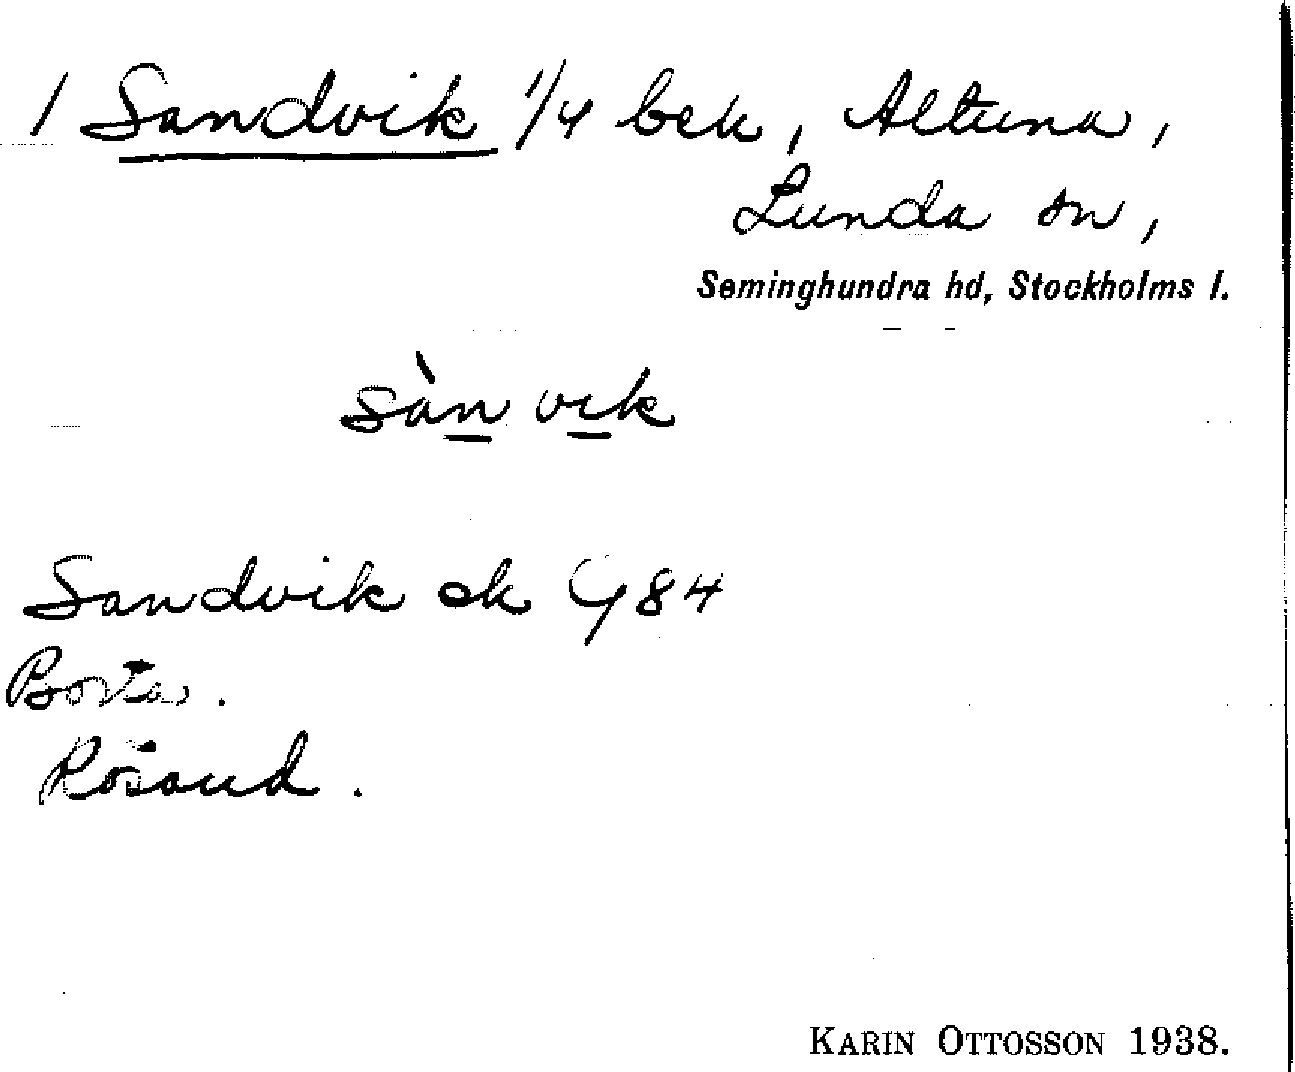 1 Sandvik 1/4 bek, Altuna,
Lunda sn,
Seminghundra hd, Stockholms l.
sàn vik
Sandvik ek G 84
Borta.
Rösand.
KARIN OTTOSSON 1938.